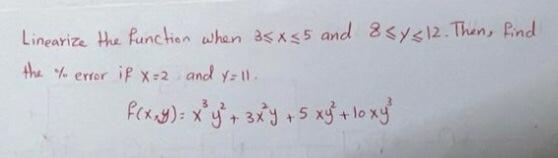 Linearize the function when 3≤x≤5 and 8≤y≤12. Then, find
the % error if x=2 and y=11.
f(x,y)= x³y² + 3x²y + 5 xy² + 10xy³